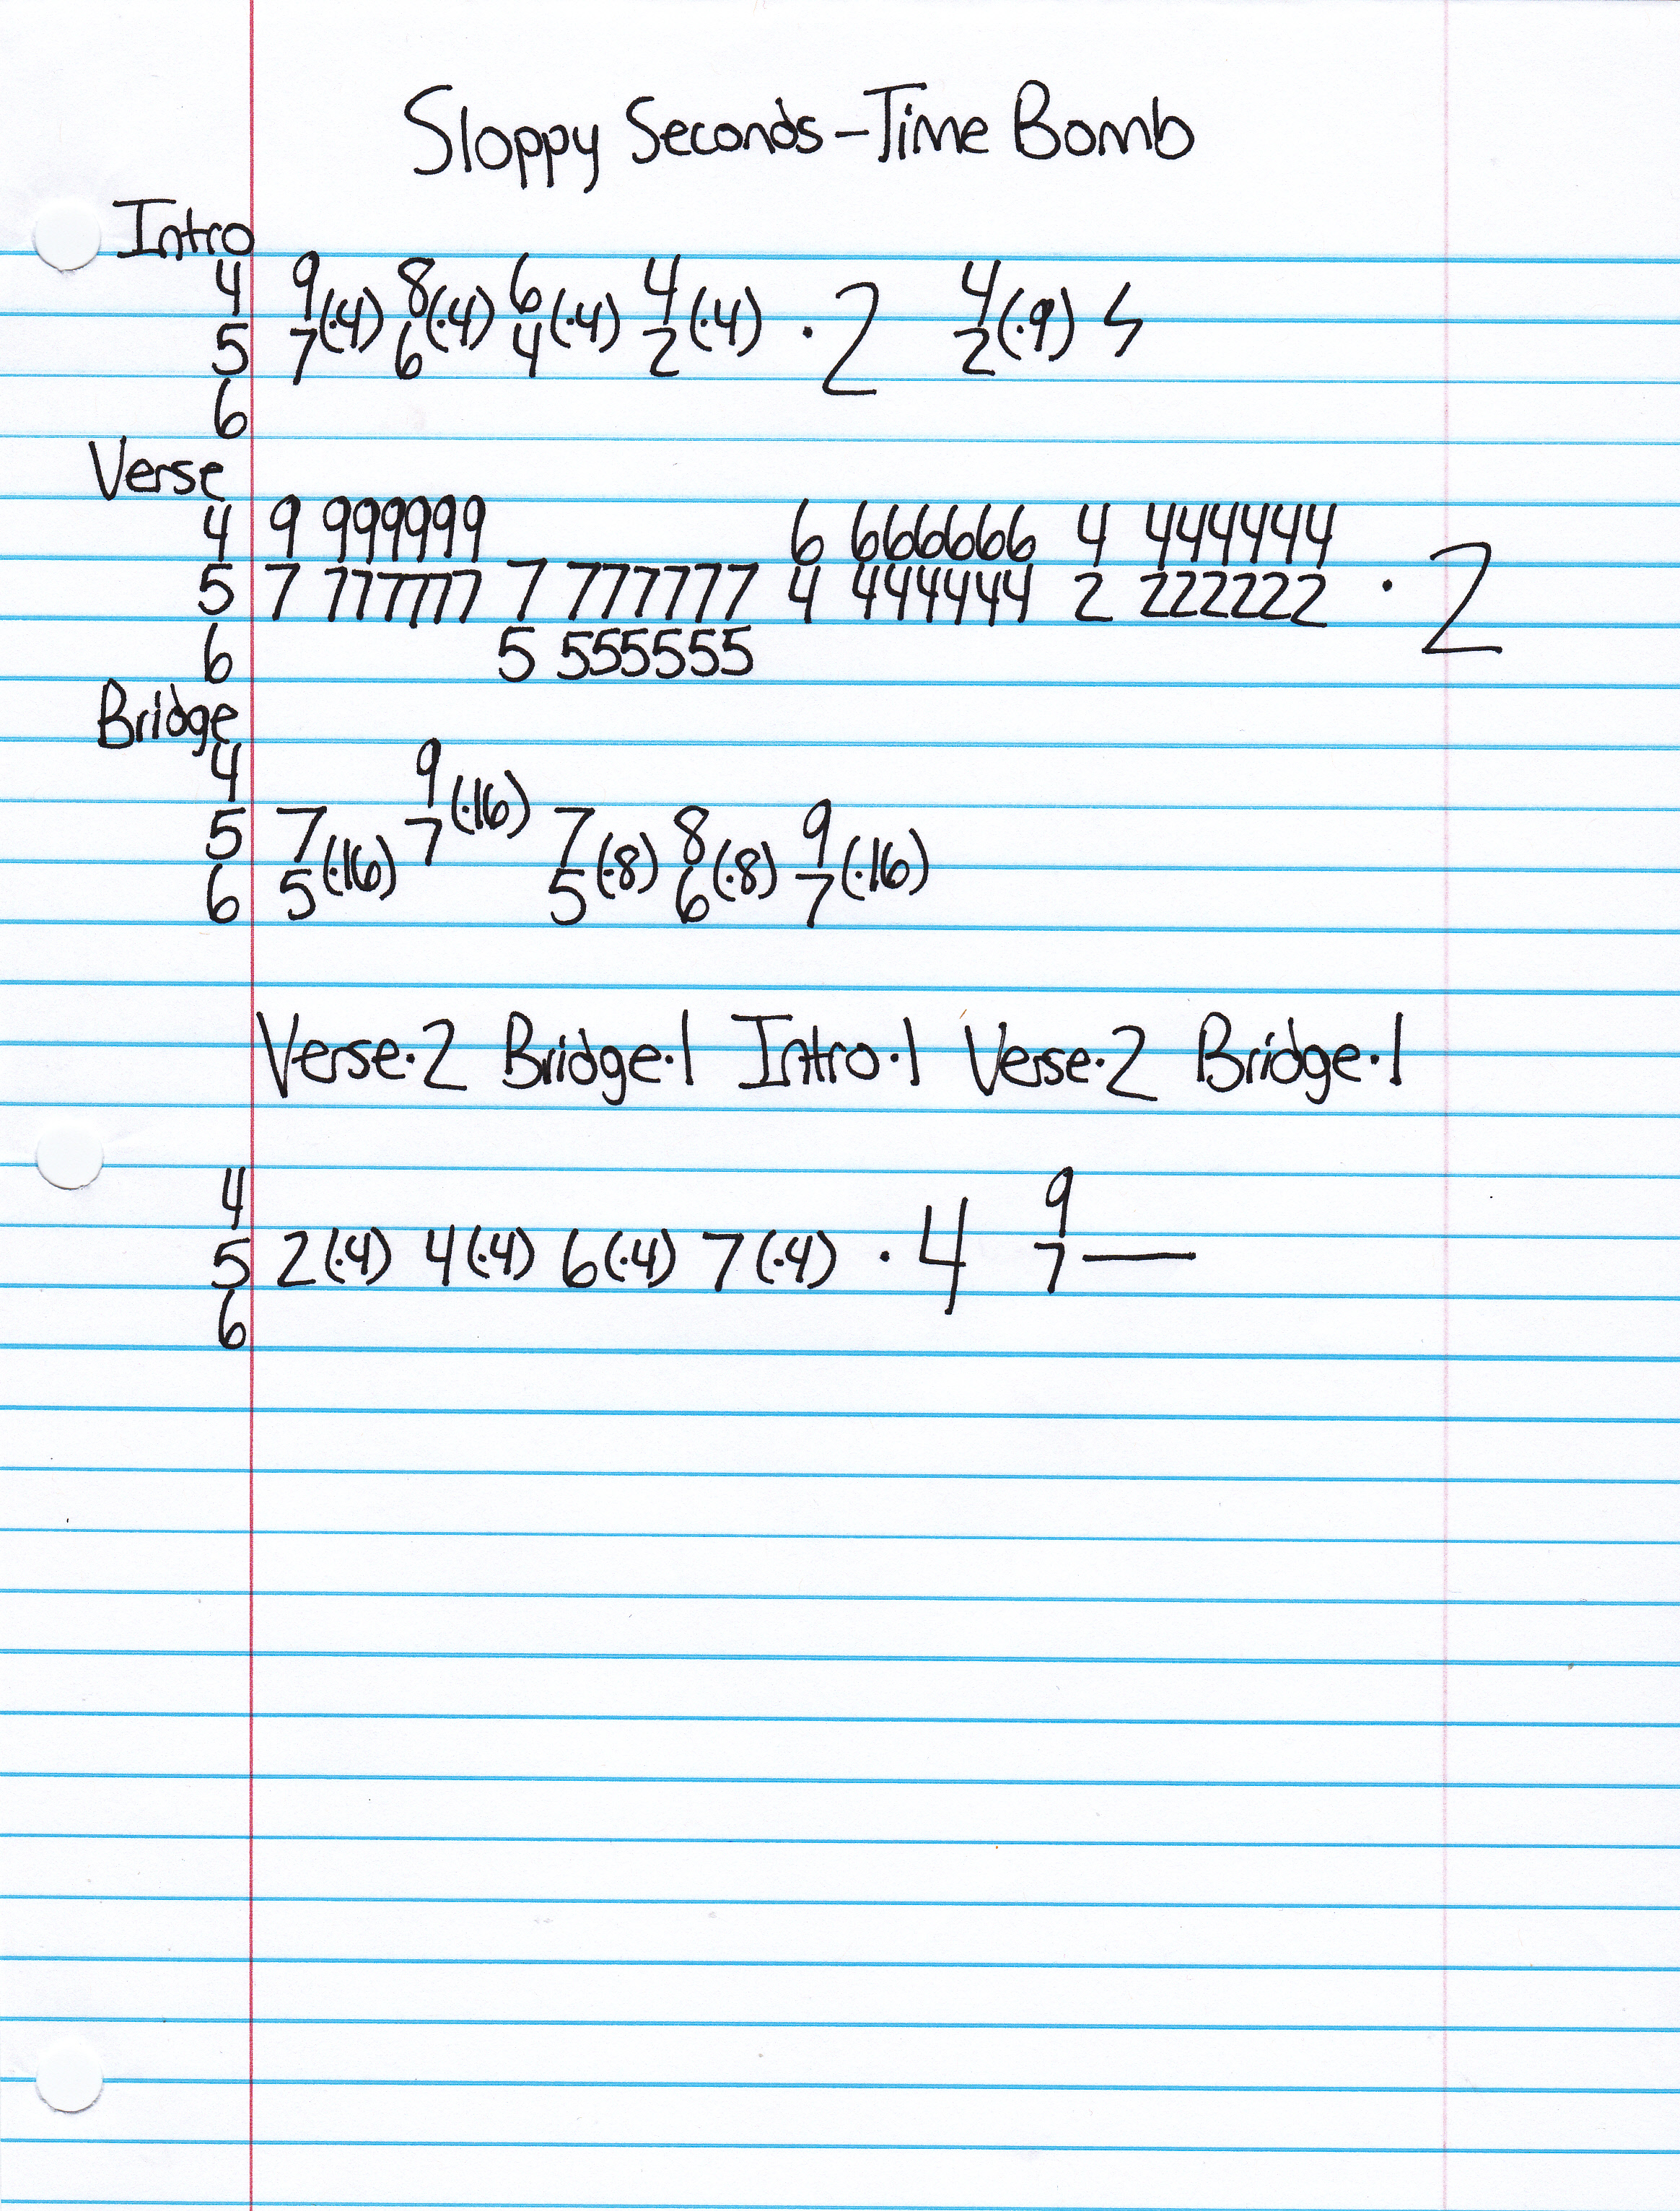 Sloppy Seconds - Time Bomb
Intro
4 9 8 6 4 4
(·4) (·4) (·4) (·4) · 2 (·9) ϟ
5 7 6 4 2 2
6
Verse
4 9 999999 6 666666 4 444444
5 7 777777 7 777777 4 444444 2 222222 · 2
6 5 555555
Bridge
4 9
(·16)
5 7 7 7 8 9
(·16) (·8) (·8) (·16)
6 5 5 6 7
Verse·2 Bridge·1 Intro·1 Verse·2 Bridge·1
4 9
5 2(·4) 4(·4) 6(·4) 7(·4) · 4 7—
6